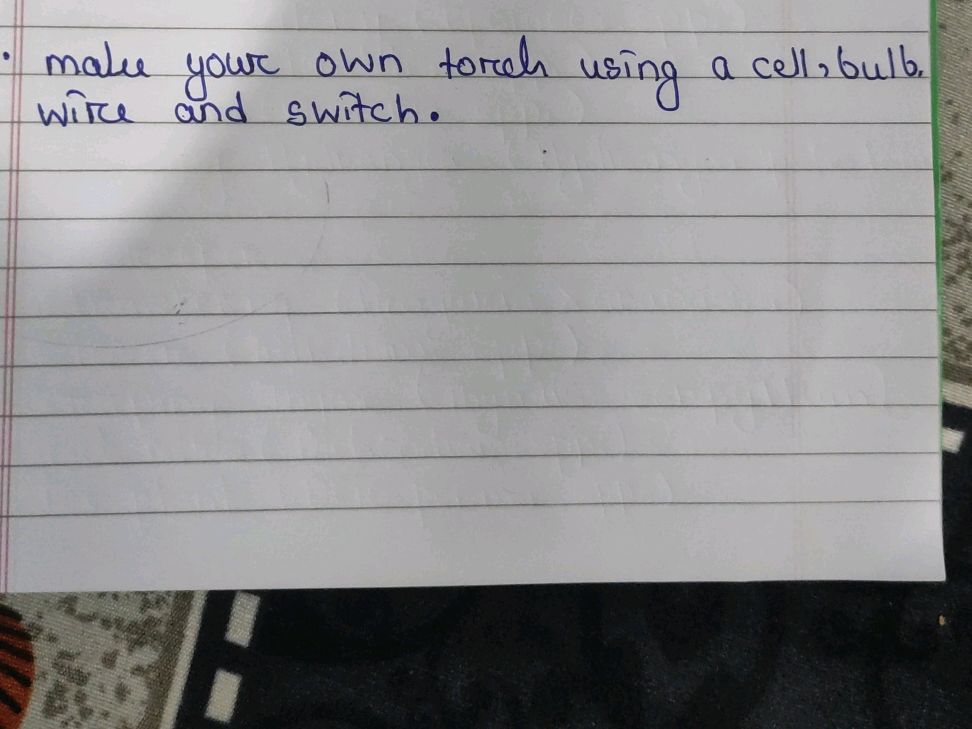 . make your own torch using a cell, bulb,
wire and switch.